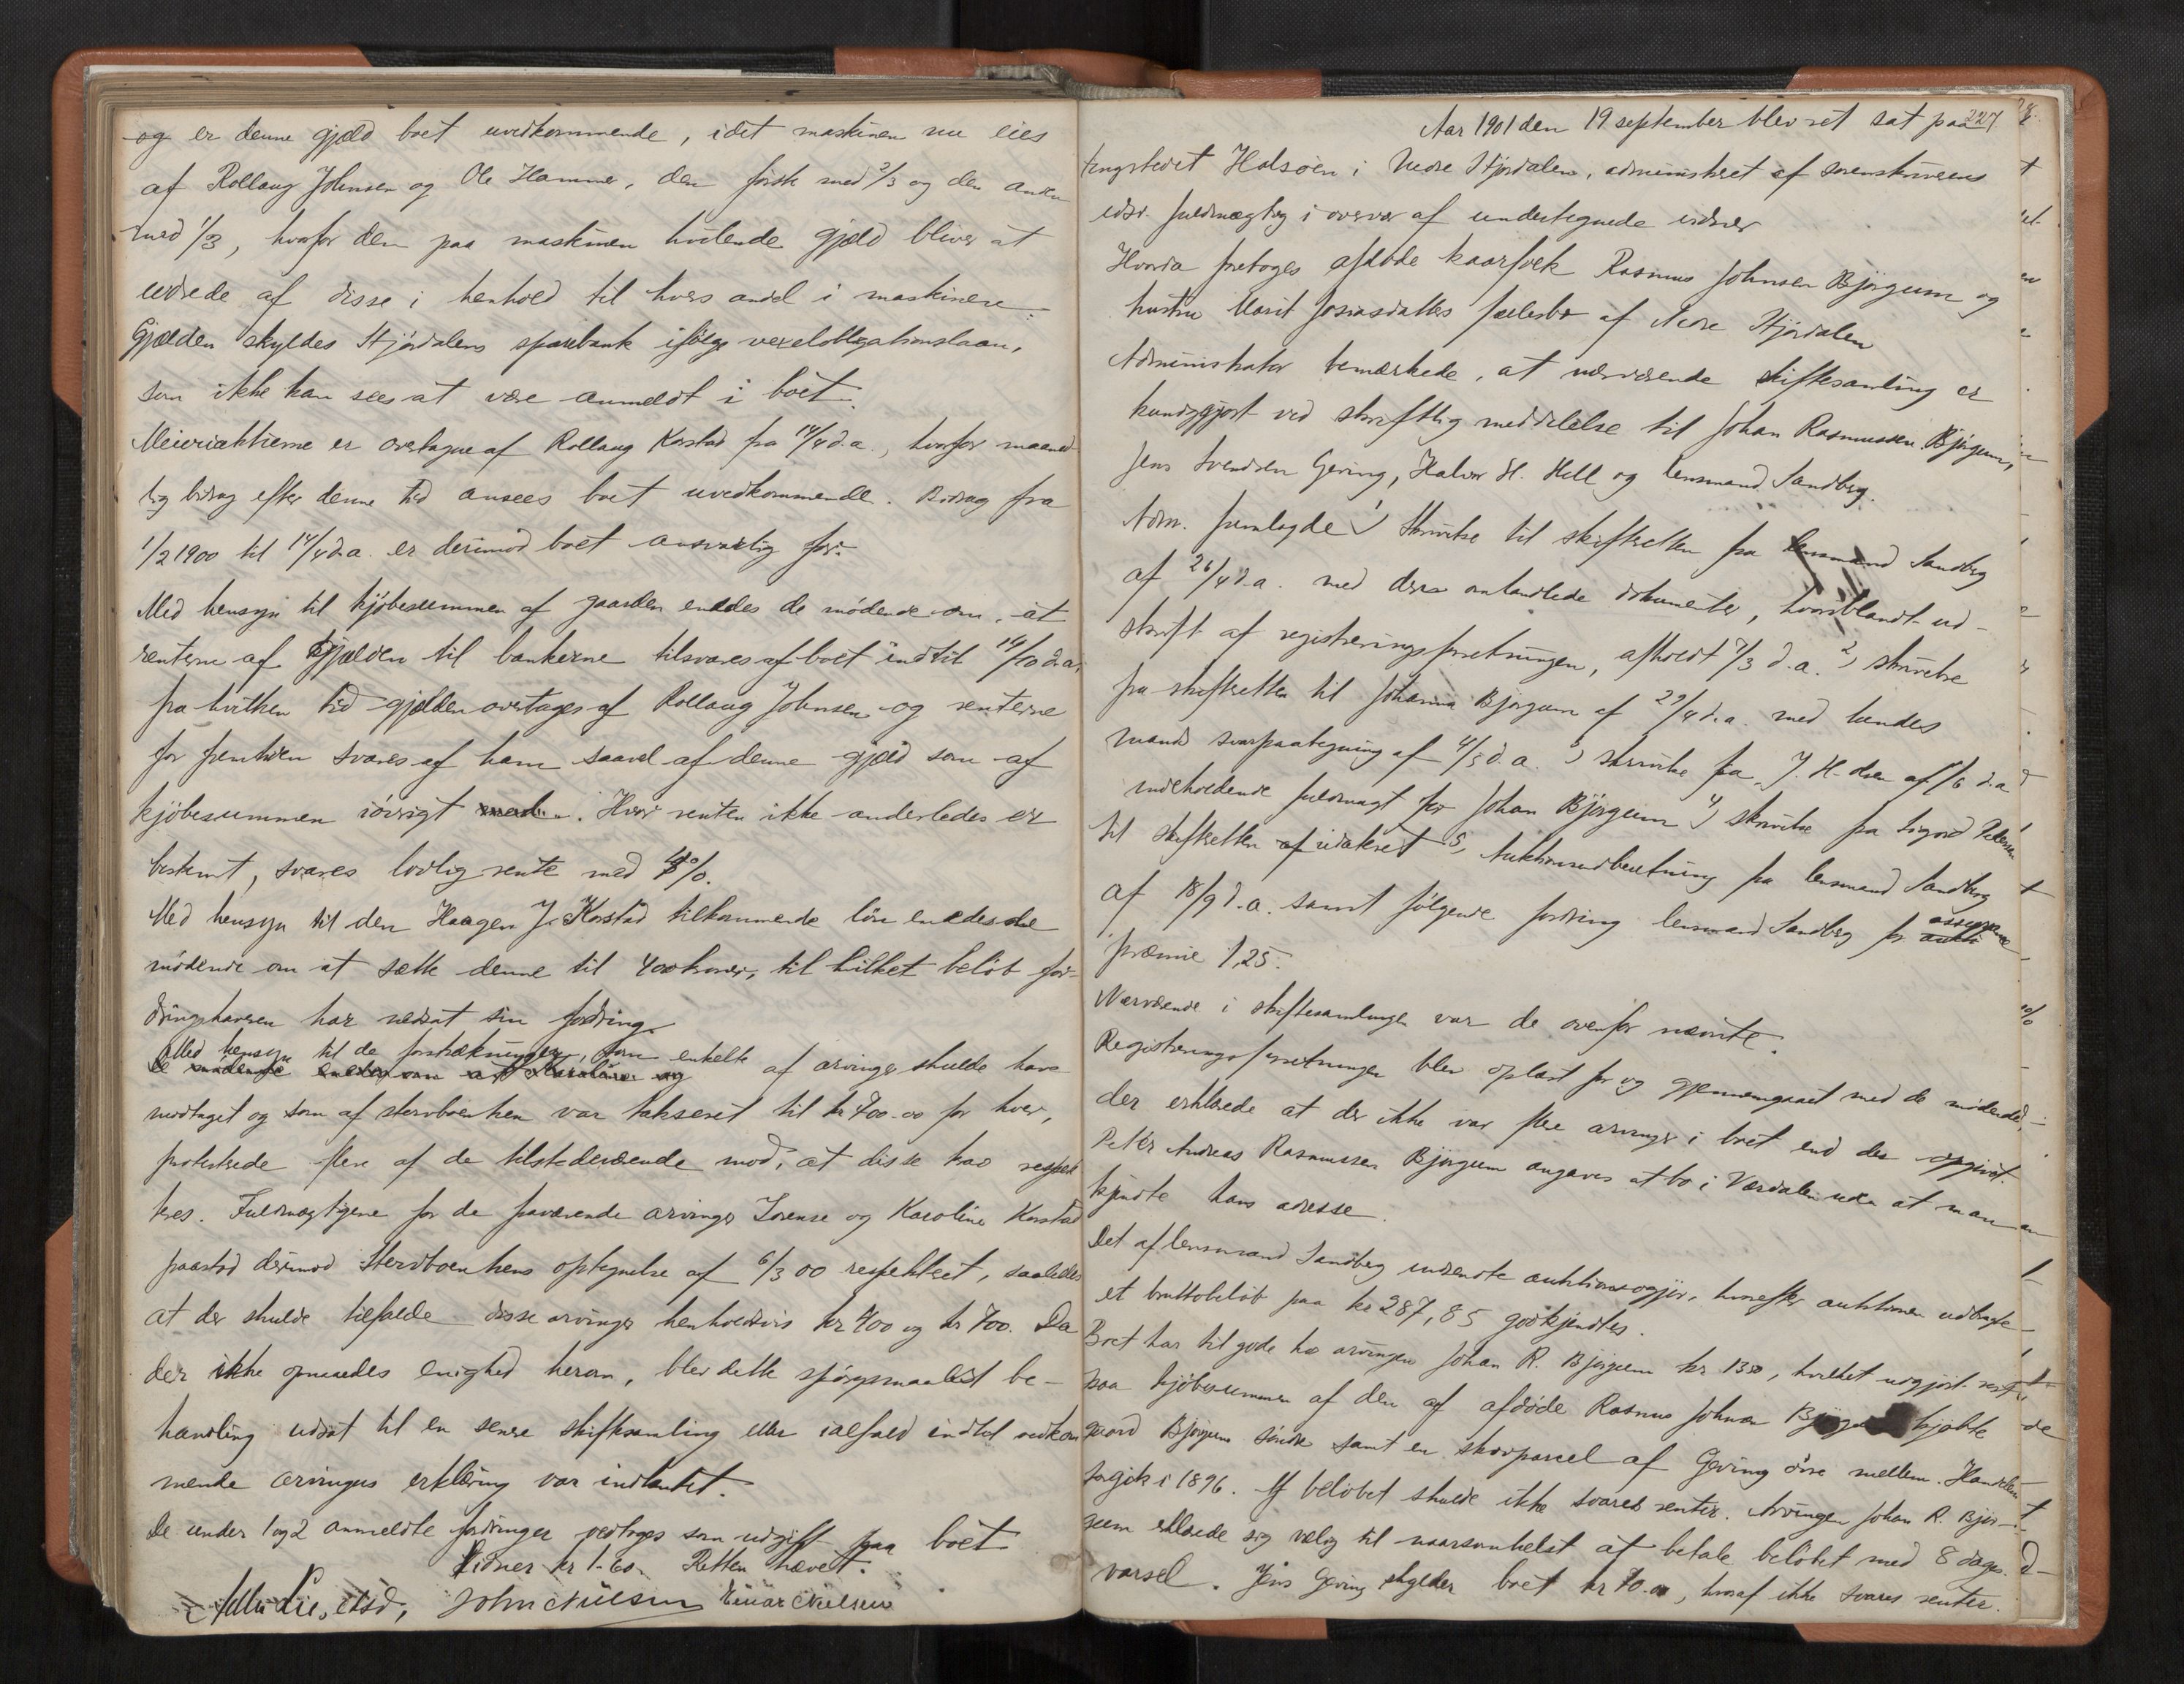 og er denne gjæld boet uvedkommende, idet maskinen nu eies
af Rollaug Johnsen og Ole Hammer, den første med 2/3 og den anden
med 1/3, hvorfor den paa maskinen hvilende gjæld bliver at
udrede af disse i henhold til hvers andel i maskinen.
Gjælden skyldes Stjørdalens sparebank ifølge vexelobligationslaan,
som ikke kan sees at være anmeldt i boet.
Meieriaktierne er overtagne af Rollaug Korstad fra 14/4 d.a., hvorfor maaned-
lig bidrag efter denne tid ansees boet uvedkommende. Bidrag fra
1/2 1900 til 14/4 d.a. er derimod boet ansvarlig for.
Med hensyn til kjøbesummen af gaarden enedes de mødende om, at
renterne af gjælden til bankerne tilsvares af boet indtil 14/10 d.a.,
fra hvilken tid gjælden overtages af Rollaug Johnsen og renterne
for fremtiden svares af ham saavel af denne gjæld som af
kjøbesummen iøvrigt. Hvor renten ikke anderledes er
bestemt, svares lovlig rente med 4%.
Med hensyn til den Haagen J. Korstad tilkommende løn enedes de
mødende om at sætte denne til 400 kroner, til hvilket beløb for-
dringshaveren har nedsat sin fordring.
Med hensyn til de forstrækninger, som enkelte af arvinger skulde have
de mødende enedes om at
modtaget og som af stervboenken var takseret til kr 400.00 for hver,
protesterede flere af de tilstedeværende mod, at disse kav respek-
teres. Fuldmægtigene for de fraværende arvinger Lorense og Karoline Korstad
paastod derimod Stervboenkens optegnelse af 6/3 00 respekteret, saaledes
at der skulde tilfalde disse arvinger henholdsvis kr 400 og kr 700. Da
der ikke opnaaedes enighed herom, blev dette spørgsmaalet be-
handling udsat til en senere skiftesamling eller ialfald indtil vedkom-
mende arvingers erklæring var indhentet.
De under 1 og 2 anmeldte fordringer vedtoges som udgift paa boet
Vidner kr 1-60. Retten hævet.
Lie, edsv., John Nielsen Einar Nielsen
227
Aar 1901 den 19 september blev ret sat paa
tingstedet Halsøen i Nedre Stjørdalen, administreret af sorenskriverens
edsv. fuldmægtig i overvær af undertegnede vidner
Hvorda foretoges afdøde kaarfolk Rasmus Johnsen Bjørgum og
hustru Marit Josiasdatters fællesbo af Nedre Stjørdalen
Administrator bemærkede, at nærværende skiftesamling er
kundgjort ved skriftlig meddelelse til Johan Rasmussen Bjørgum,
Jens Svendsen Geving, Halvor H. Hell og lensmand Sandberg.
Adm. fremlagde 1) Skrivelse til skifteretten fra lensmand Sandberg
af 26/4 d.a. med deri omhandlede dokumenter, hvoriblandt ud-
skrift af registreringsforretningen, afholdt 7/3 d.a. 2) skrivelse
fra skifteretten til Johanna Bjørgum af 29/4 d.a. med lends
mands svarpaategning af 4/5 d.a. 3) skrivelse fra J. H-dsen af 1/6 d.a
indeholdende fuldmagt for Johan Bjørgum 4) skrivelse fra Sigurd Petersen
til skifteretten af udateret 5) Auktionsudberetning fra lensmand Sandberg
af 18/9 d.a. samt følgende fordring lensmand Sandberg for assurance
præmie 1,25.
Nærværende i skiftesamlingen var de ovenfor nævnte.
Registreringsforretningen blev oplæst for og gjennemgaaet med de mødende,
der erklærede at der ikke var flere arvinger i boet end der opgivet.
Peter Andreas Rasmussen Bjørgum angaves at bo i Værdalen uden at man
kjendte hans adresse.
Det af lensmand Sandberg indsendte auktionsopgjør, hvorefter auktionen udbragte
et bruttobeløb paa kr 287,85 godkjendtes.
Boet har til gode hos arvingen Johan R. Bjørgum kr 1350, hvilket udgjør rest
paa kjøbesummen af den af afdøde Rasmus Johnsen Bjørgum kjøbte
gaard Bjørgum søndre samt en skovparcel af Geving øvre mellem. Handelen
foregik i 1896. Af beløbet skulde ikke svares renter. Arvingen Johan R. Bjør-
gum erklærede sig villig til naarsomhelst at betale beløbet med 8 dages
varsel. Jens Geving skylder boet kr 70.00, hvoraf ikke svares renter.